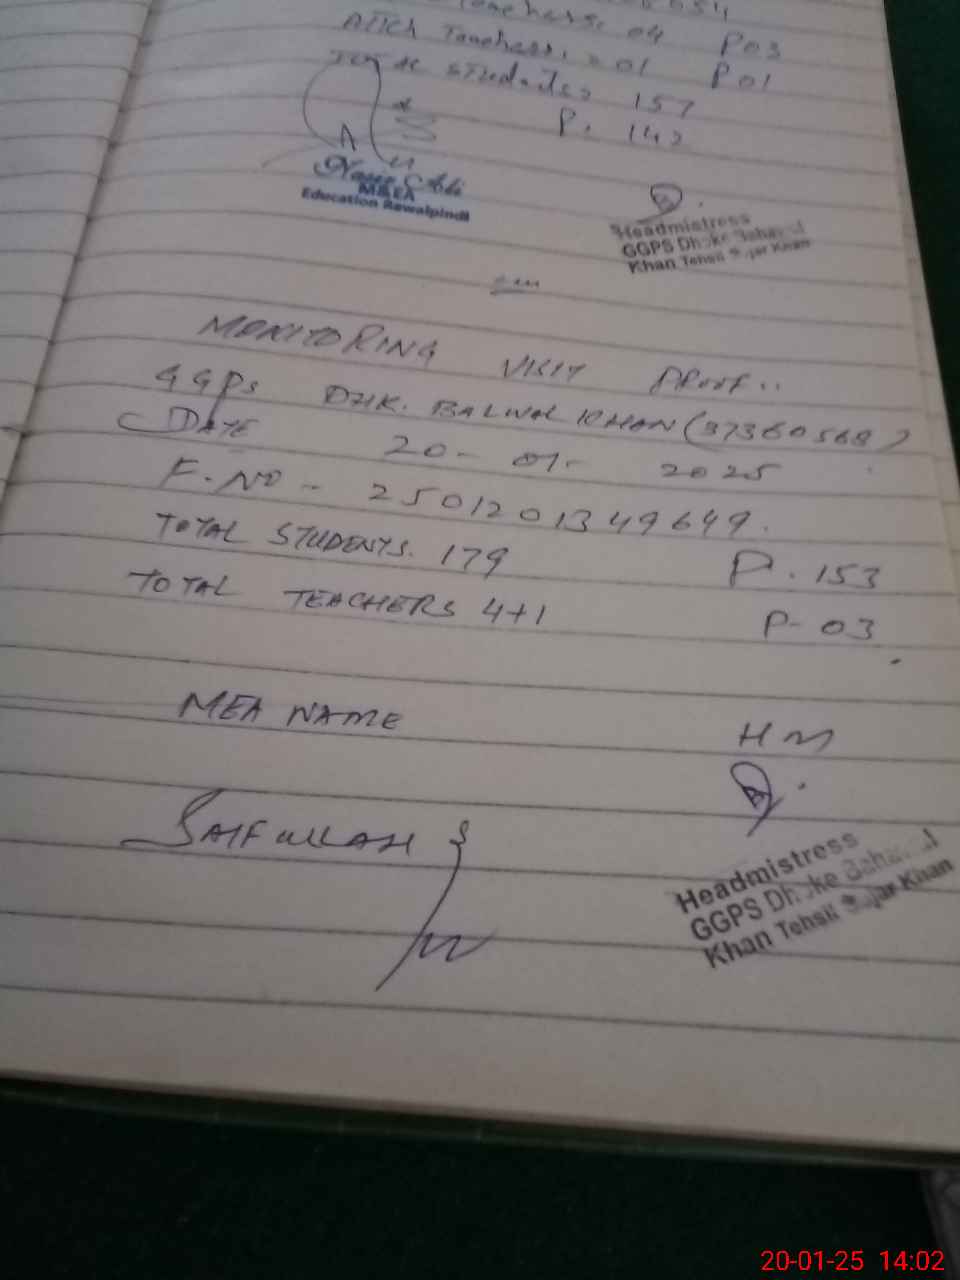 Teachers. 04 P03
Attch Teachers. = 01 P01
students 157
P. 142
M&EA
Education Rawalpindi
Headmistress
GGPS Dhoke
Khan Tehsil Gujar Khan
MONITORING VISIT PROOF..
GGPS DHK. BALWAL KHAN (37360568)
DATE 20-01-2025
F.NO - 2501201349649.
TOTAL STUDENTS. 179 P. 153
TOTAL TEACHERS 4+1 P- 03
MEA NAME HM
SAIFULLAH
Headmistress
GGPS Dhoke
Khan Tehsil Gujar Khan
20-01-25 14:02